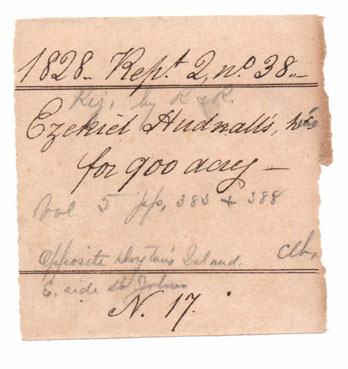 1828. Rept 2, no 38.
Rej. by R & R.
Ezekiel Hudnall's, hrs
for 900 acres —
Vol 5 pp, 385 + 388
Opposite Drayton's Island.
E. side St Johns
N. 17.